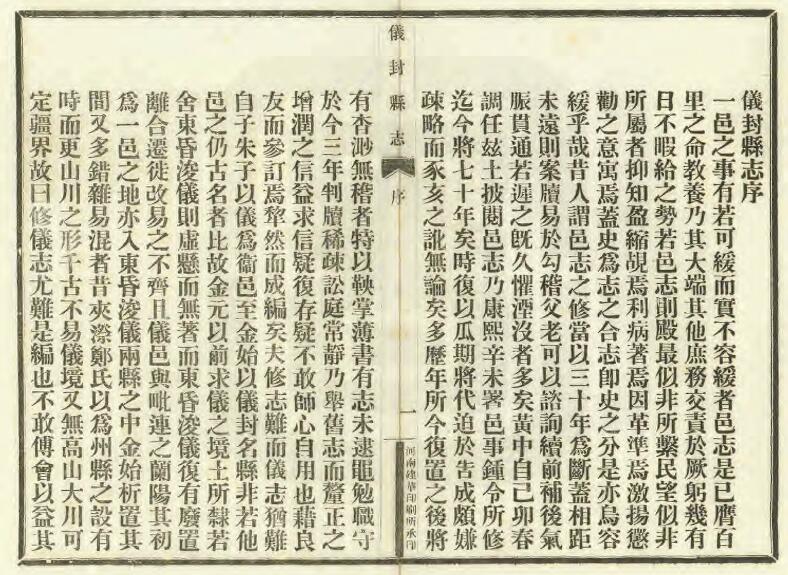 儀封縣志序
一邑之事有若可緩而實不容緩者邑志是已膺百
里之命敎養乃其大端其他庶務交責於厥躬幾有
日不暇給之勢若邑志則殿最似非所繫民望似非
所屬者抑知盈縮覘焉利病著焉因革準焉激揚懲
勸之意寓焉蓋史爲志之合志卽史之分是亦烏容
緩乎哉昔人謂邑志之修當以三十年爲斷蓋相距
未遠則案牘易於勾稽父老可以諮詢續前補後氣
脈貫通若遲之旣久懼湮沒者多矣黃中自己卯春
調任兹土披閱邑志乃康熙辛未署邑事鍾令所修
迄今將七十年矣時復以瓜期將代迫於告成頗嫌
疎略而豕亥之訛無論矣多歷年所今復置之後將
儀封縣志
序
一
河南建華印刷所承印
有杳渺無稽者特以鞅掌薄書有志未逮黽勉職守
於今三年判牘稀疎訟庭常靜乃舉舊志而釐正之
增潤之信益求信疑復存疑不敢師心自用也藉良
友而參訂焉犂然而成編矣夫修志難而儀志猶難
自子朱子以儀爲衞邑至金始以儀封名縣非若他
邑之仍古名者比故金元以前求儀之境土所隸若
舍東昏浚儀則虛懸而無著而東昏浚儀復有廢置
離合遷徙改易之不齊且儀邑與毗連之蘭陽其初
爲一邑之地亦入東昏浚儀兩縣之中金始析置其
間又多錯雜易混者昔夾漈鄭氏以爲州縣之設有
時而更山川之形千古不易儀境又無高山大川可
定疆界故曰修儀志尤難是編也不敢傅會以益其